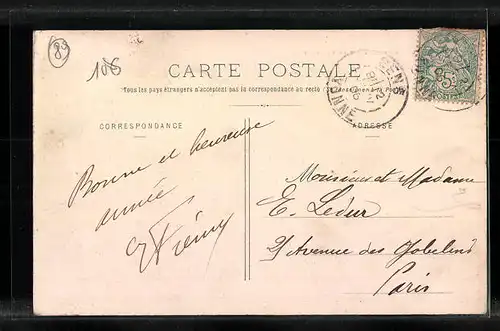 89
108
CARTE POSTALE
Tous les pays étrangers n'acceptent pas la correspondance au recto
CORRESPONDANCE
ADRESSE
Bonne et heureuse
année
Monsieur et Madame
E. Ledur
21 Avenue des Gobelins
Paris